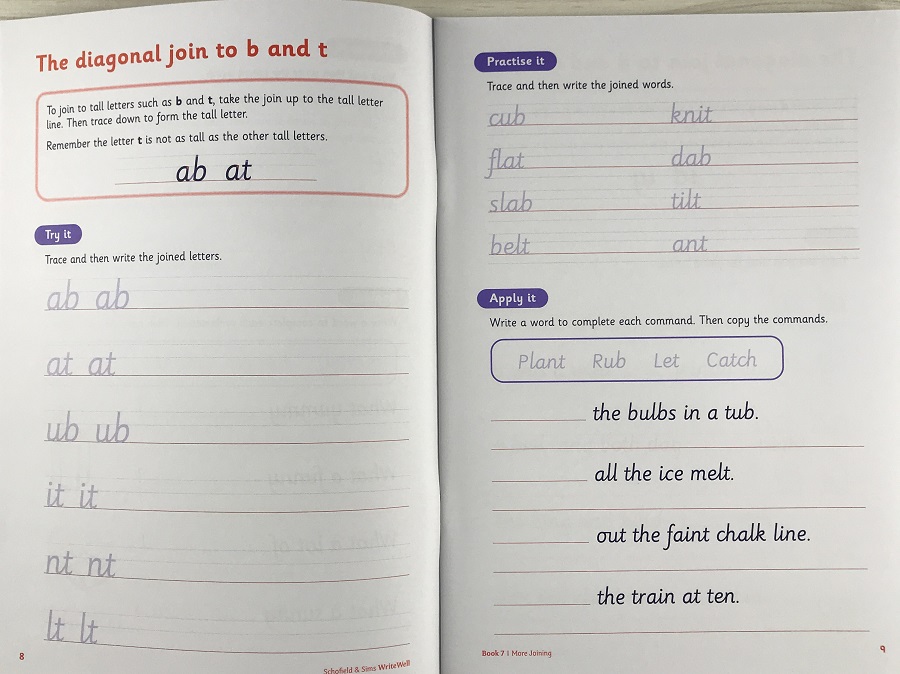 The diagonal join to b and t
To join to tall letters such as b and t, take the join up to the tall letter
line. Then trace down to form the tall letter.
Remember the letter t is not as tall as the other tall letters.
ab at
Try it
Trace and then write the joined letters.
ab ab
at at
ub ub
it it
nt nt
lt lt
8
Schofield & Sims WriteWell
Practise it
Trace and then write the joined words.
cub knit
flat dab
slab tilt
belt ant
Apply it
Write a word to complete each command. Then copy the commands.
Plant Rub Let Catch
the bulbs in a tub.
all the ice melt.
out the faint chalk line.
the train at ten.
Book 7 | More Joining
9